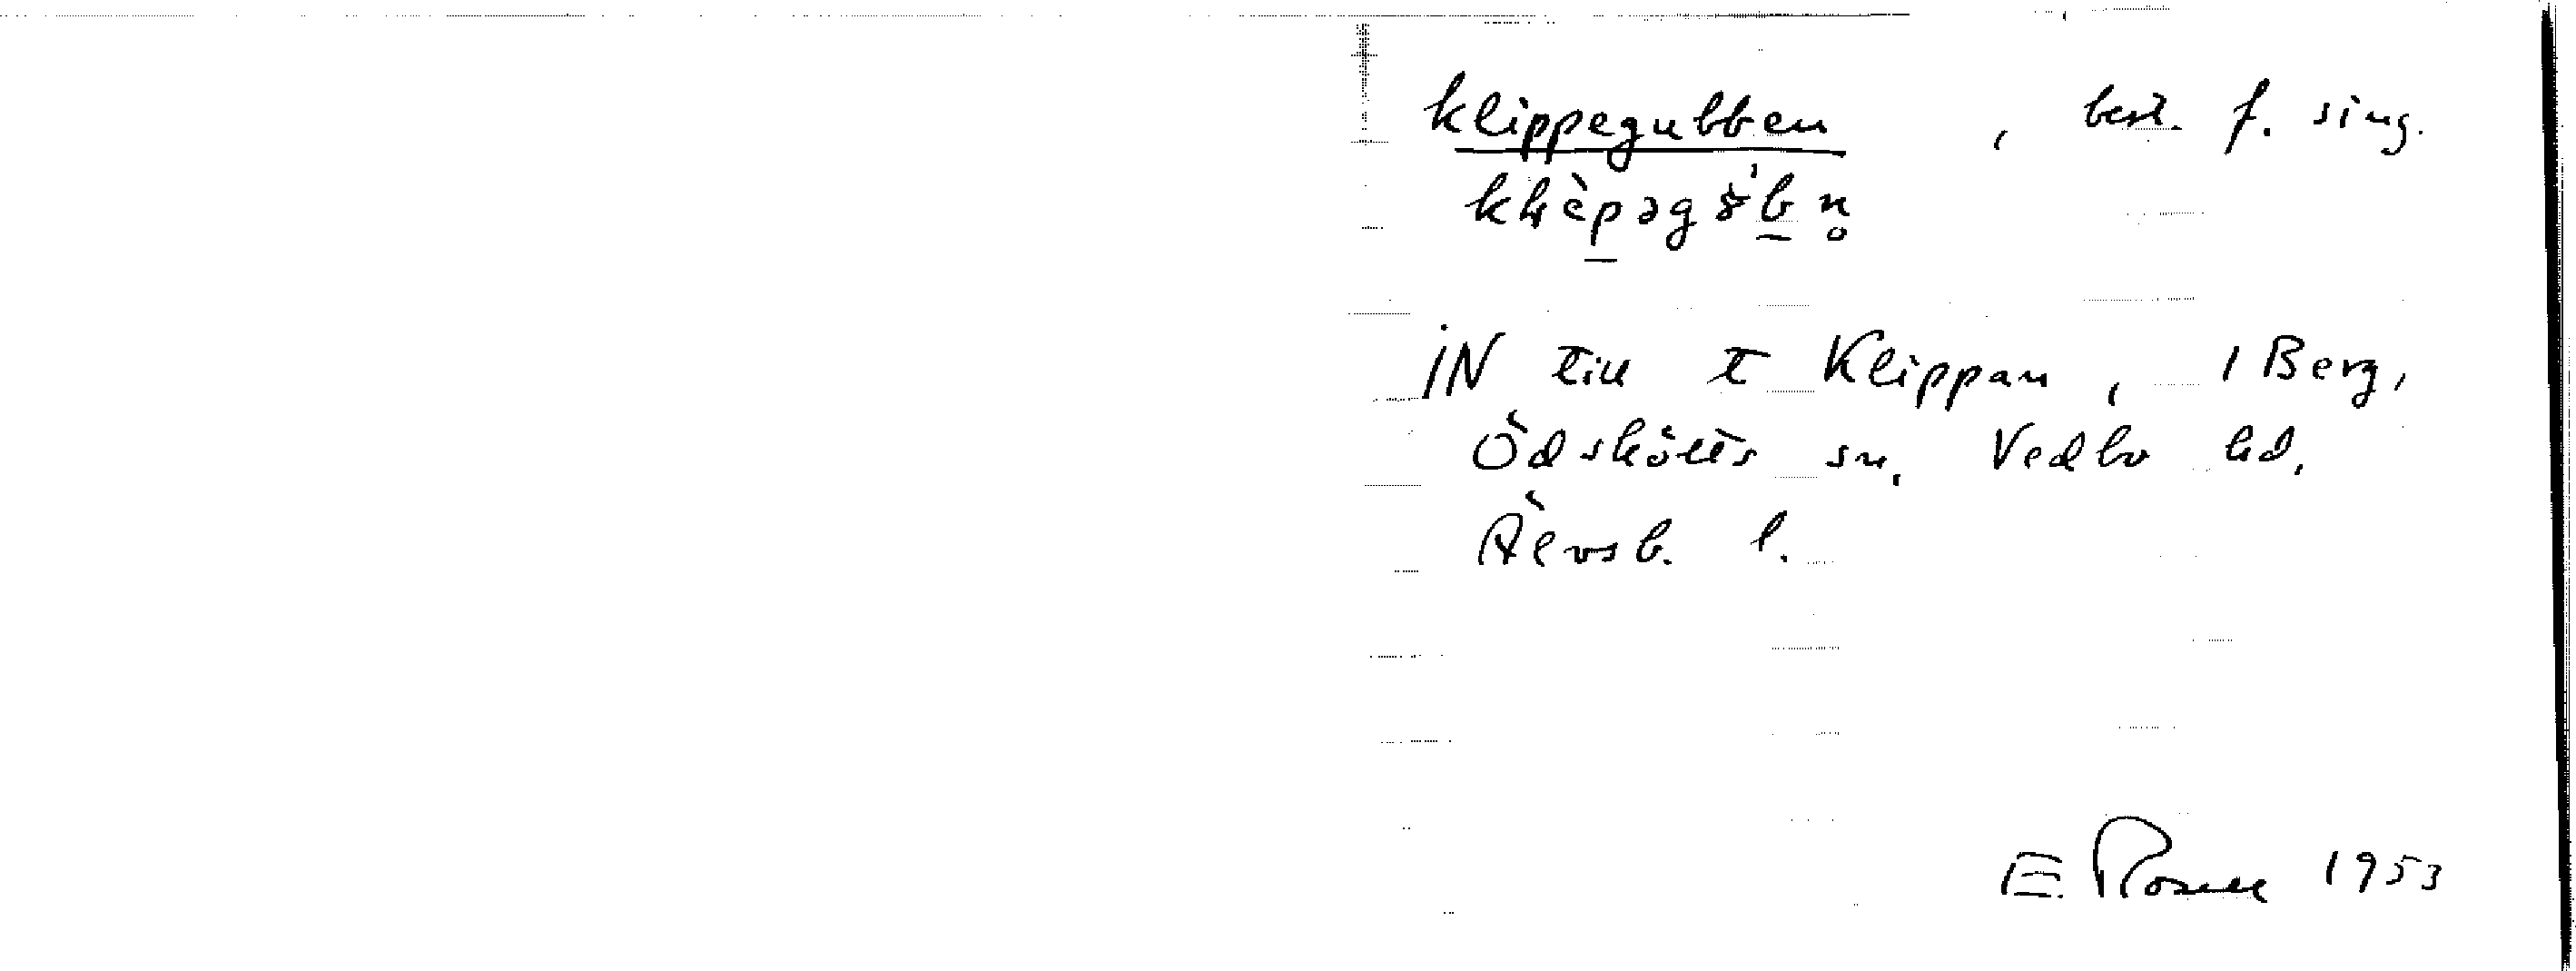 klippegubben , best. f. sing.
IN till t Klippan, 1 Berg,
Ödskölts sn, Vedbo hd,
Älvsb. l.
E. Rosell 1953